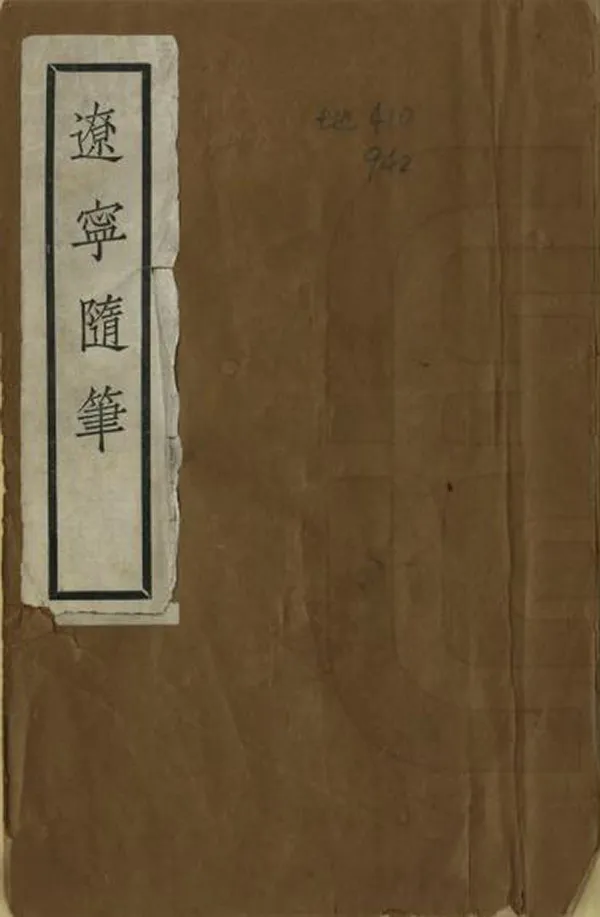 遼寧隨筆
地 410
942